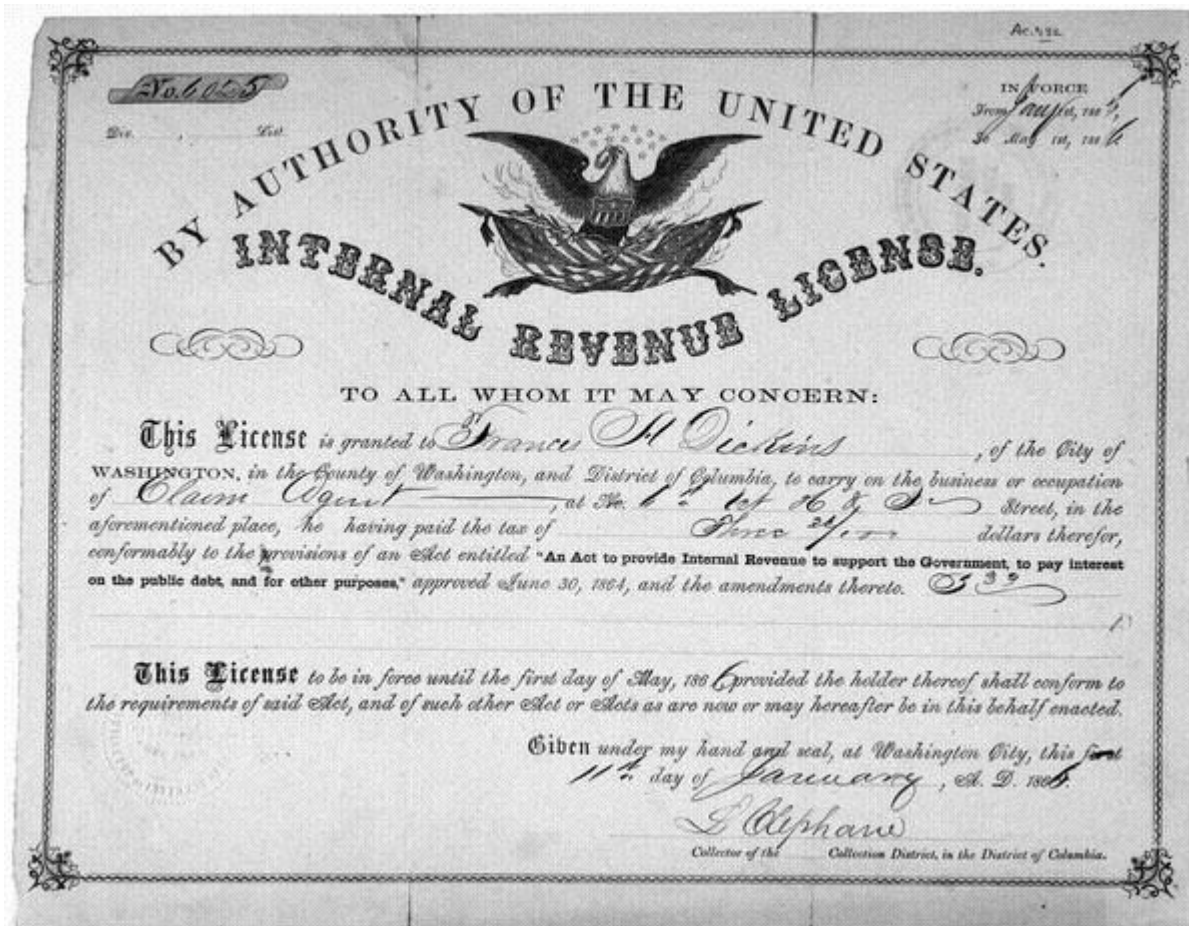 No. 6055
IN FORCE
Div. , Dist.
From Jany 1st, 186
To May 1st, 1866
BY AUTHORITY OF THE UNITED STATES.
INTERNAL REVENUE LICENSE.
TO ALL WHOM IT MAY CONCERN:
This License is granted to Frances H Dickins, of the City of
WASHINGTON, in the County of Washington, and District of Columbia, to carry on the business or occupation
of Claim Agent, at No. Street, in the
aforementioned place, he having paid the tax of Three dollars therefor,
conformably to the provisions of an Act entitled "An Act to provide Internal Revenue to support the Government, to pay interest
on the public debt, and for other purposes," approved June 30, 1864, and the amendments thereto.
This License to be in force until the first day of May, 1866 provided the holder thereof shall conform to
the requirements of said Act, and of such other Act or Acts as are now or may hereafter be in this behalf enacted.
Given under my hand and seal, at Washington City, this first
11th day of January, A. D. 186
L Clephane
Collector of the Collection District, in the District of Columbia.